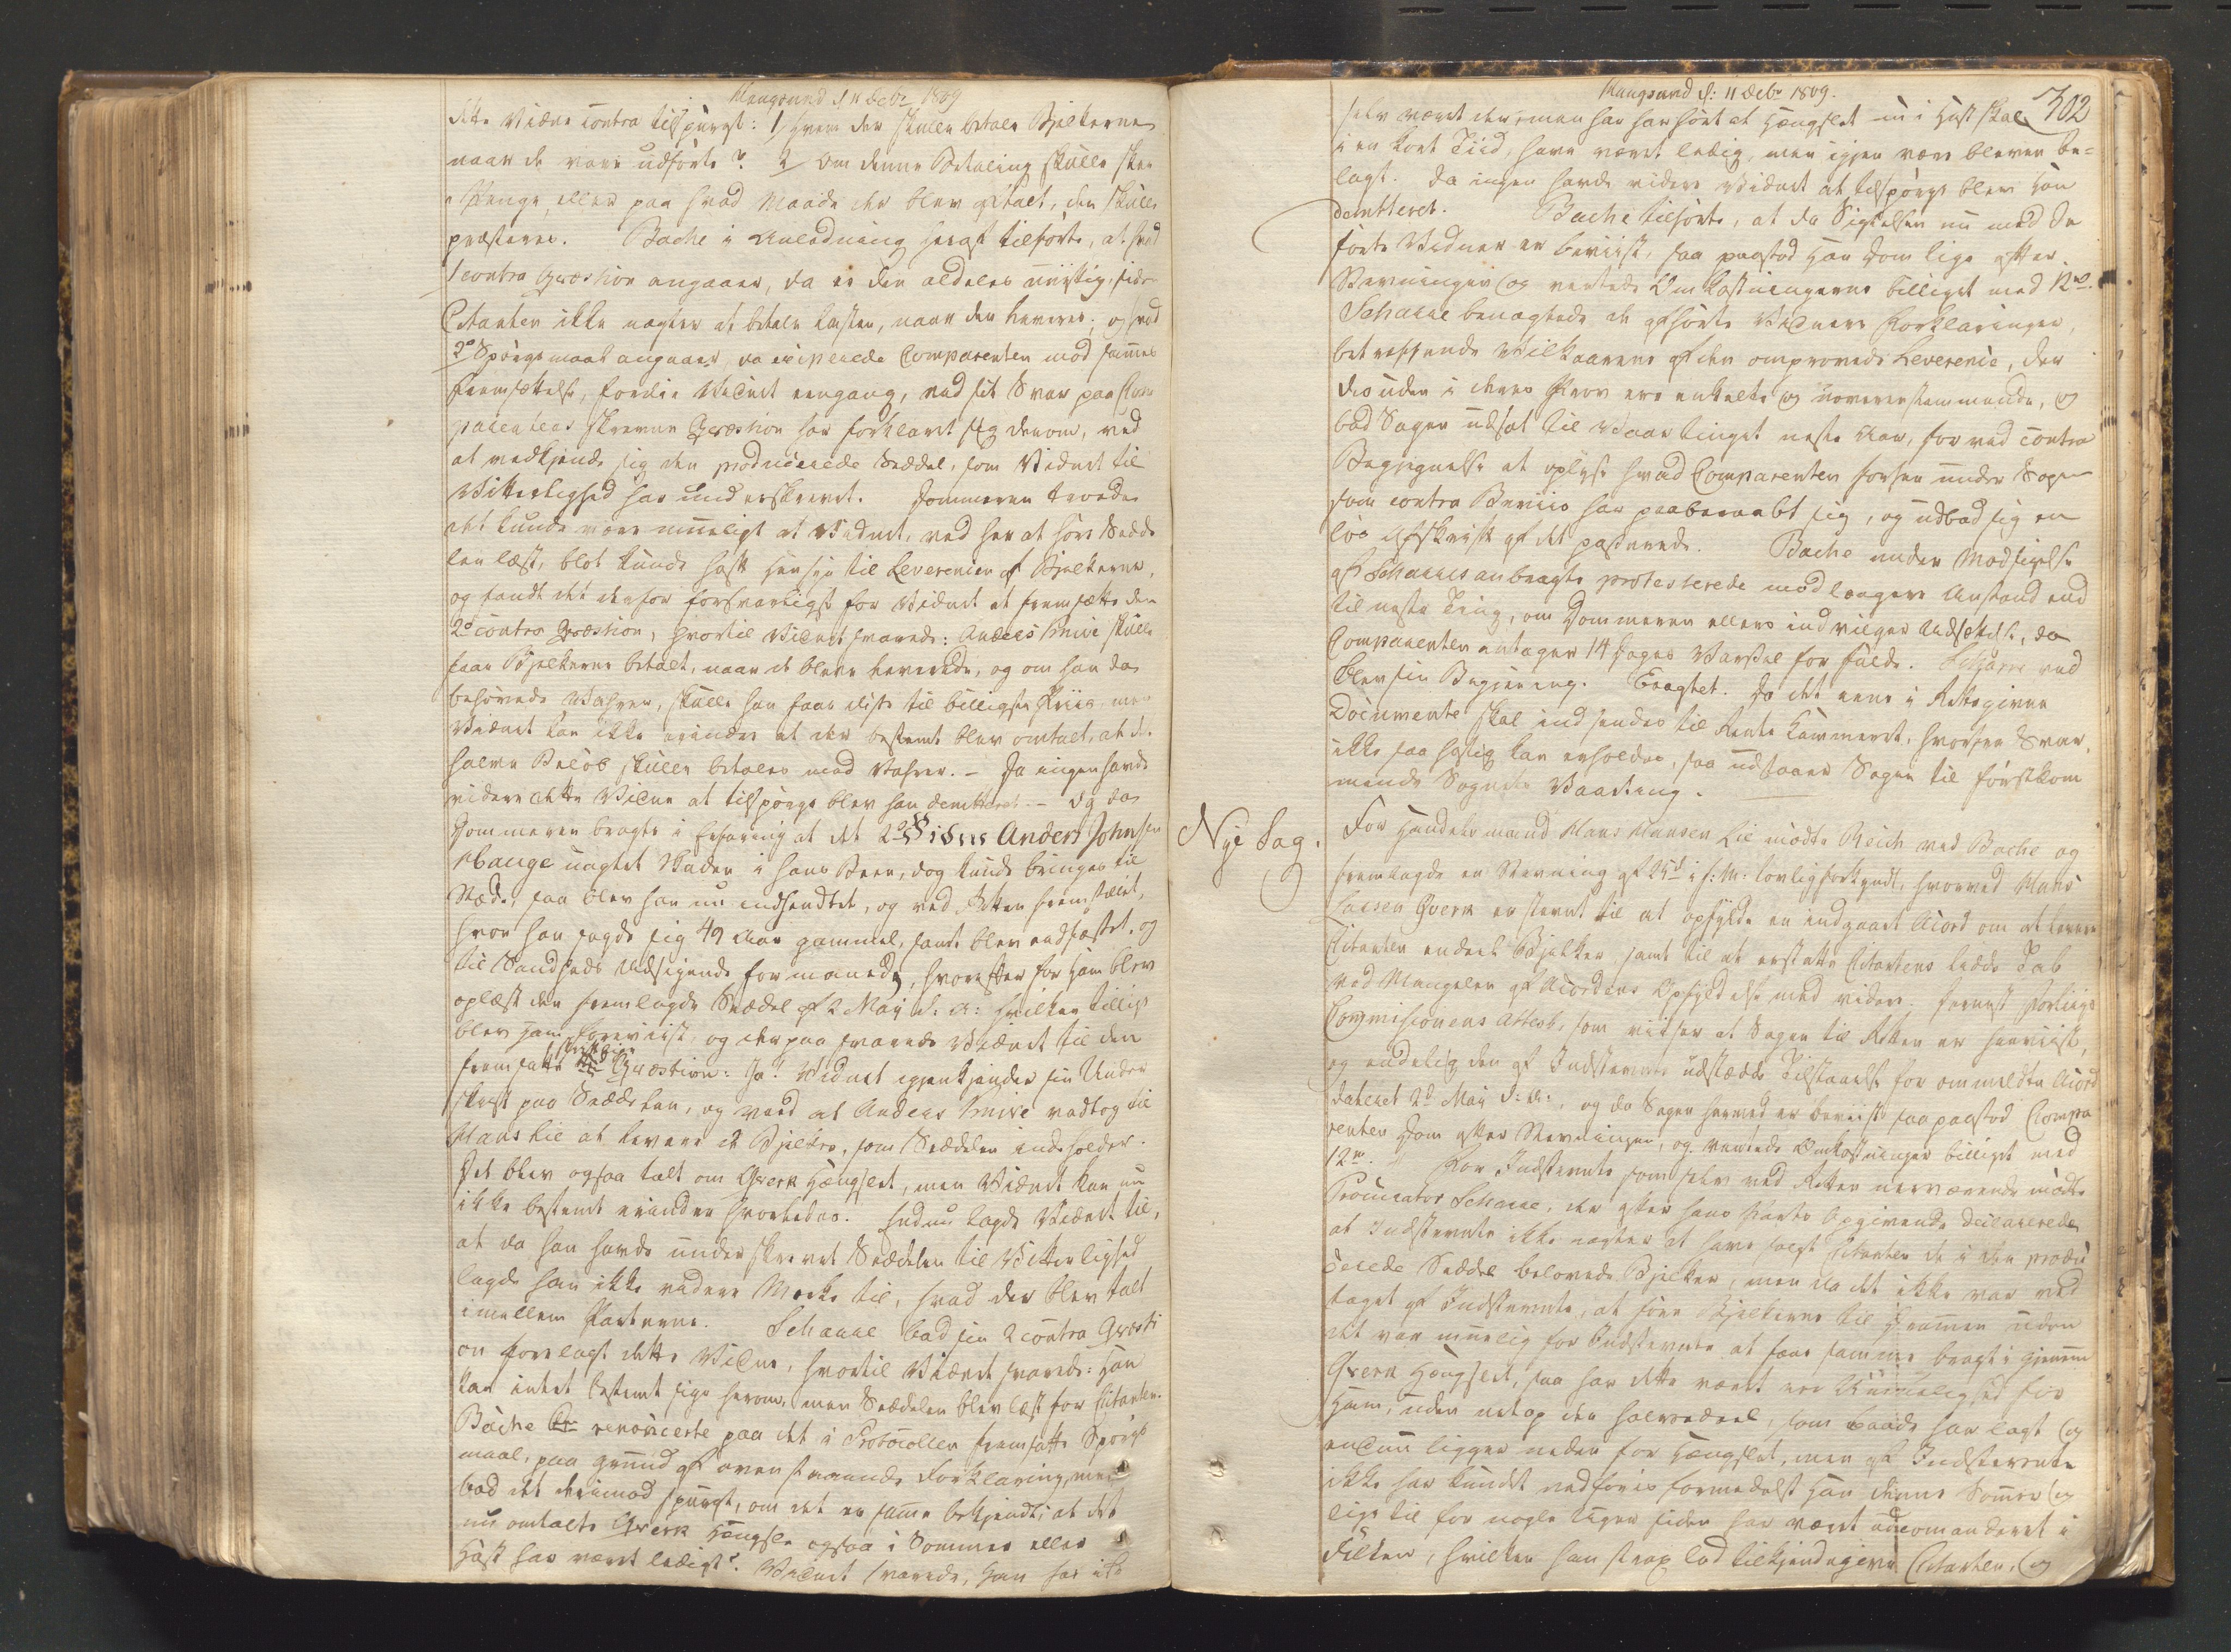 Haugsund d 11 Decbr 1809
dette Vidne contra tilspurgt: 1/ Hvem der skulle betale Bjelkerne
naar de vare udførte? 2/ Om denne Betaling skulle skee
i Penge, eller paa hvad Maade der blev aftalt, den skulle
præsteres. Bache i Anledning heraf tilførte, at hvad
1 contra Qvæstion angaaer, da er den aldeles unyttig, siden
Citanten ikke nægter at betale Lasten, naar den leveres; og hvad
2det Spørgsmaal angaaer, da exciperede Comparenten mod sammes
Fremsættelse, fordi Vidnet eengang, ved sit Svar paa Com
parentens skrevne Qvæstion har forklaret sig derom, ved
at vedkjende sig den producerede Seddel, som Vidnet til
Vitterlighed har underskrevet. Dommeren troede
det kunde være mueligt at Vidnet, ved her at høre Sedde
len læst, blot kunde haft Hensyn til Leverencen af Bjelkerne,
og fandt det derfor forsvarligst for Vidnet at fremsætte den
2den contra Qvæstion, hvortil Vidnet svarede: Anders Smive skulle
faae Bjelkerne betalt, naar de bleve leverede, og om han da
behøvede Vahrer, skulle han faae disse til billigste Priis, men
Vidnet kan ikke erindre at der bestemt blev omtalt, at det
halve Beløb skulle betales med Vahrer. – Da ingen havde
videre dette Vidne at tilspørge blev han demitteret. – Og da
Dommeren bragte i Erfaring at det 2det Vidne Anders Johnsen
Hauge uagtet Skaden i hans Been, dog kunde bringes til
Stæde, saa blev han nu indhendtet, og ved Retten fremstillet,
hvor han sagde sig 49 Aar gammel, samt blev eedfæstet, og
til Sandheds Udsigende formanet, hvorefter for ham blev
oplæst den fremlagde Seddel af 2 May d: A: hvilken tillige
blev ham foreviist, og derpaa svarede Vidnet til den
fremsatte skriftlige Qvæstion: Ja! Vidnet igjenkjender sin Under
skrift paa Seddelen, og veed at Anders Smive vedtog til
Hans Lie at levere de Bjelker, som Seddelen indeholder.
Det blev ogsaa talt om Qverk Hængslet, men Vidnet kan nu
ikke bestemt erindre hvorledes. Endnu lagde Vidnet til,
at da han havde underskrevet Seddelen til Vitterlighed
lagde han ikke videre Mærke til, hvad der blev talt
imellem Parterne. Schanne bad sin 2 contra Qvæsti
on forelagt dette Vidne, hvortil Vidnet svarede: Han
kan intet bestemt sige herom, men Seddelen blev læst for Citanten.
Bache renoncerte paa det i Protocollen fremsatte Spørgs
maal, paa Grund af ovenstaaende Forklaring, men
bad det derimod spurgt, om det er samme bekjendt, at det
nu omtalte Qverk Hængsle ogsaa i Sommer eller
Høst har været ledigt? Vidnet svarede, han har ikke
Haugsund d: 11 Decbr 1809.
302
selv været der, men han har hørt at Hængslet nu i Høst skal
i en kort Tiid, have været ledig, men igjen være bleven be-
lagt. Da ingen havde videre Vidnet at tilspørge blev han
demitteret. Bache tilførte, at da Sigtelsen nu med de
førte Vidner er beviist, saa paastod han Dom lige efter
Stevningen og ventede Omkostningerne billiget med
Schanne benægtede de afhørte Vidners Forklaringer,
betreffende Vilkaarene af den omprovede Leverence, der
desuden i deres Prov ere enkelte og uoverenstemmende, og
bad Sagen udsat til Vaartinget neste Aar, for ved contra
Bejegnelse at oplyse hvad Comparenten forhen under Sagen
som contra Beviis har paaberaabt sig, og udbad sig en
løs Afskrift af det passerede. Bache under Modsigelse
af Schannes anbragte protesterede mod længere Anstand end
til neste Ting, om Dommeren ellers indvilger Udsættelse, da
Comparenten antager 14 Dages Varsel for fuldt. Schanne ved
blev sin Begjering. Eragtet. Da det ene i Rette givne
Document skal indsendes til Rente Kammeret, hvorfra Svar
ikke saa hastig kan erholdes, saa udstaaer Sagen til førstkom
mende Sogne Vaarting.
Nye Sag.
For Handelsmand Hans Hansen Lie mødte Reich ved Bache og
fremlagde en Stevning af 25d i f: M: lovlig forkyndt, hvorved Hans
Larsen Qverk er stevnt til at opfylde en indgaaet Accord om at levere
Citanten endeel Bjelker, samt til at erstatte Citantens lidde Tab
ved Mangelen af Accordens Opfyldelse med videre. Fernest Forligs
Commissionens Attest, som viiser at Sagen til Retten er henviist,
og endelig den af Indstevnte udstædde Tilstaaelse for ommeldte Accord
dateret 2d May d: A:, og da Sagen hermed er beviist saa paastod Compa
renten Dom efter Stevningen, og ventede Omkostninger billiget med
12rd. For Indstevnte som selv ved Retten nerværende mødte
Procurator Schanne, der efter hans Parts Opgivende declarerede
at Indstevnte ikke negter at have solgt Citanten de i den produ
cerede Seddel belovede Bjelker, men da det ikke var ved
taget af Indstevnte, at føre Bjelkerne til Drammen uden
det var muelig for Indstevnte at faae samme bragt igjennem
Qverk Hængslet, saa har dette været en Umuelighed for
Ham, uden netop den halvedeel, som baade har lagt og
endnu ligger neden for Hængslet, men af Indstevnte
ikke har kundet nedføres formedelst Han denne Sommer og
lige til for nogle Uger siden har været udcomanderet i
Filken, hvilken han strax lod tilkjendegive Citanten, og